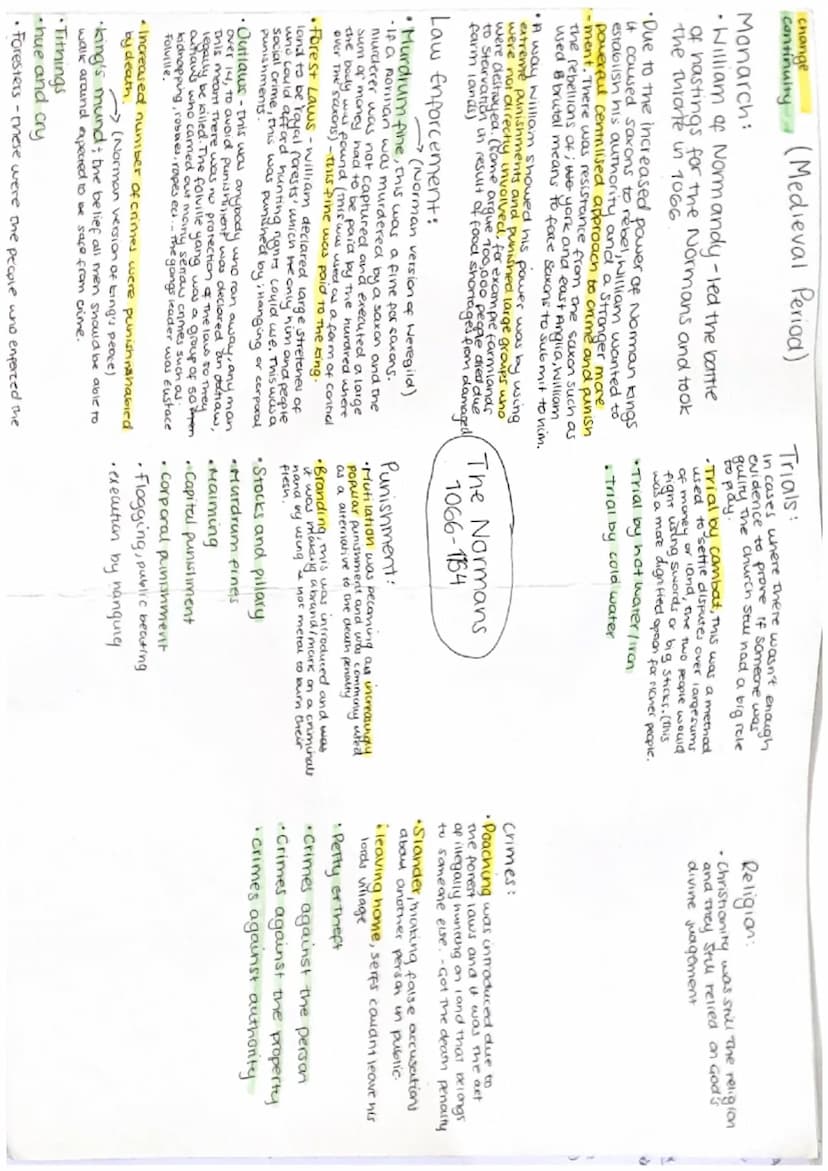 change
continuity
(Medieval Period)
Monarch:
• William of Normandy - led the battle
of hastings for the Normans and took
the throne in 1066
• Due to the increased power of Norman kings
it caused saxons to rebel, William wanted to
establish his authority and a stronger more
powerful centrilised approach to crime and punish
-ment. There was resistance from the saxon such as
the rebellions of; york and east Anglia, William
used a brutal means to force saxons to submit to him.
• A way William showed his power was by using
extreme punishments and punished large groups who
were not directly involved, for example farmlands
were destroyed, (some argue 100,000 people died due
to starvation in result of food shortages from damaged
farm lands)
Law Enforcement:
→ (Norman version of Weregild)
• Murdrum fine, this was a fine for saxons.
- If a Norman was murdered by a saxon and the
murderer was not captured and executed a large
sum of money had to be paid by the hundred where
the body was found (this was used as a form of control
over the saxons) - this fine was paid to the king.
• Forest Laws - William declared large stretches of
land to be 'Royal forests' which he only him and people
who could afford hunting rights could use. This was a
social crime, this was punished by; Hanging or corporal
punishments.
• Outlaws - this was anybody who ran away, any man
over 14, to avoid punishment was declared an outlaw,
this meant there was no protection of the law so they
legally be killed. The Folville gang was a group of 50 men
outlaws who carried out many serious crimes such as
kidnapping, robbers, rapes ect - the gangs leader was Eustace
Folville.
• Increased number of crimes were punishable
by death.
→ (Norman version of kings peace)
• King's mund; the belief all men should be able to
walk around expected to be safe from crime.
• Tithings
• hue and cry
• Foresters - these were the people who enforced the
The Normans
1066-1154
Trials:
In cases where there wasn't enough
evidence to prove if someone was
guilty the church still had a big role
to play.
• Trial by combat, this was a method
used to settle disputes over large sums
of money or land, the two people would
fight using swords or big sticks. (This
was a more dignified option for richer people.
• Trial by hot water / iron
• Trial by cold water
Punishment:
• Mutilation was becoming an increasingly
popular punishment and was commonly used
as a alternative to the death penalty
• Branding, this was introduced and was
it was making a brand/mark on a criminals
hand by using a hot metal to burn their
flesh.
• Stocks and pillary
• Murdrum fines
• Maiming
• Capital punishment
• Corporal punishment
• Flogging, public beating
• execution by hanging
Religion:
• Christianity was still the religion
and they still relied on God's
divine judgement
Crimes:
• Poaching was introduced due to
the forest laws and it was the act
of illegally hunting on land that belongs
to someone else. - Got the death penalty
• Slander, making false accusations
about another person in public
• leaving home, serfs couldnt leave his
lords village
• Petty theft
• Crimes against the person
• Crimes against the property
• Crimes against authority